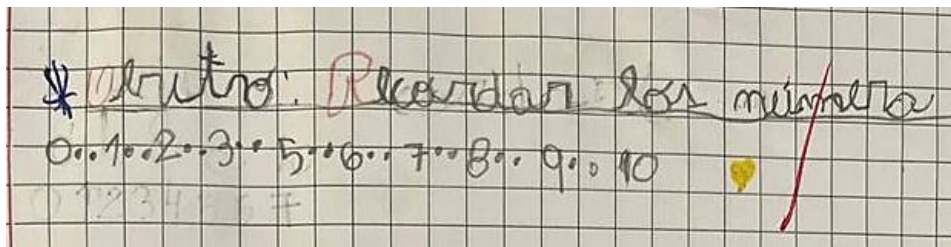 * Objetivo: Recordar los número
0..1..2..3.. 5..6.. 7..8.. 9.. 10
01234567